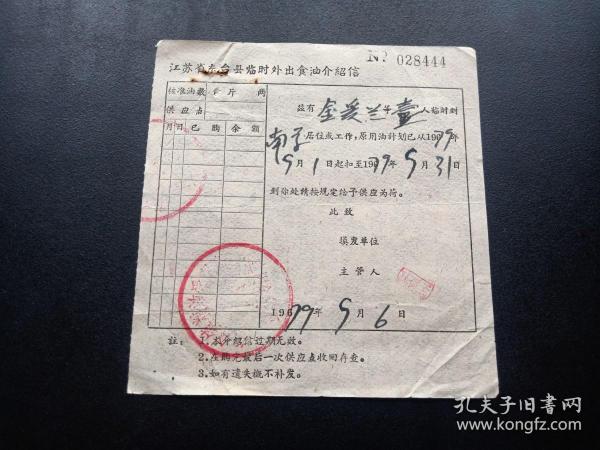 № 028444
江苏省东台县临时外出食油介紹信
核准油数 斤 两
供应点
月 日 已 购 余 额
茲有金爱兰等壹人临时到
南京居住或工作,原用油计划已从1979年
5月1日起扣至1979年5月31日
到你处請按规定给予供应为荷。
此致
填发单位
主管人
1979年5月6日
註:1.本介紹信过期无效。
2.在购完最后一次供应点收回存查。
3.如有遗失概不补发。
孔夫子旧书网
www.kongfz.com